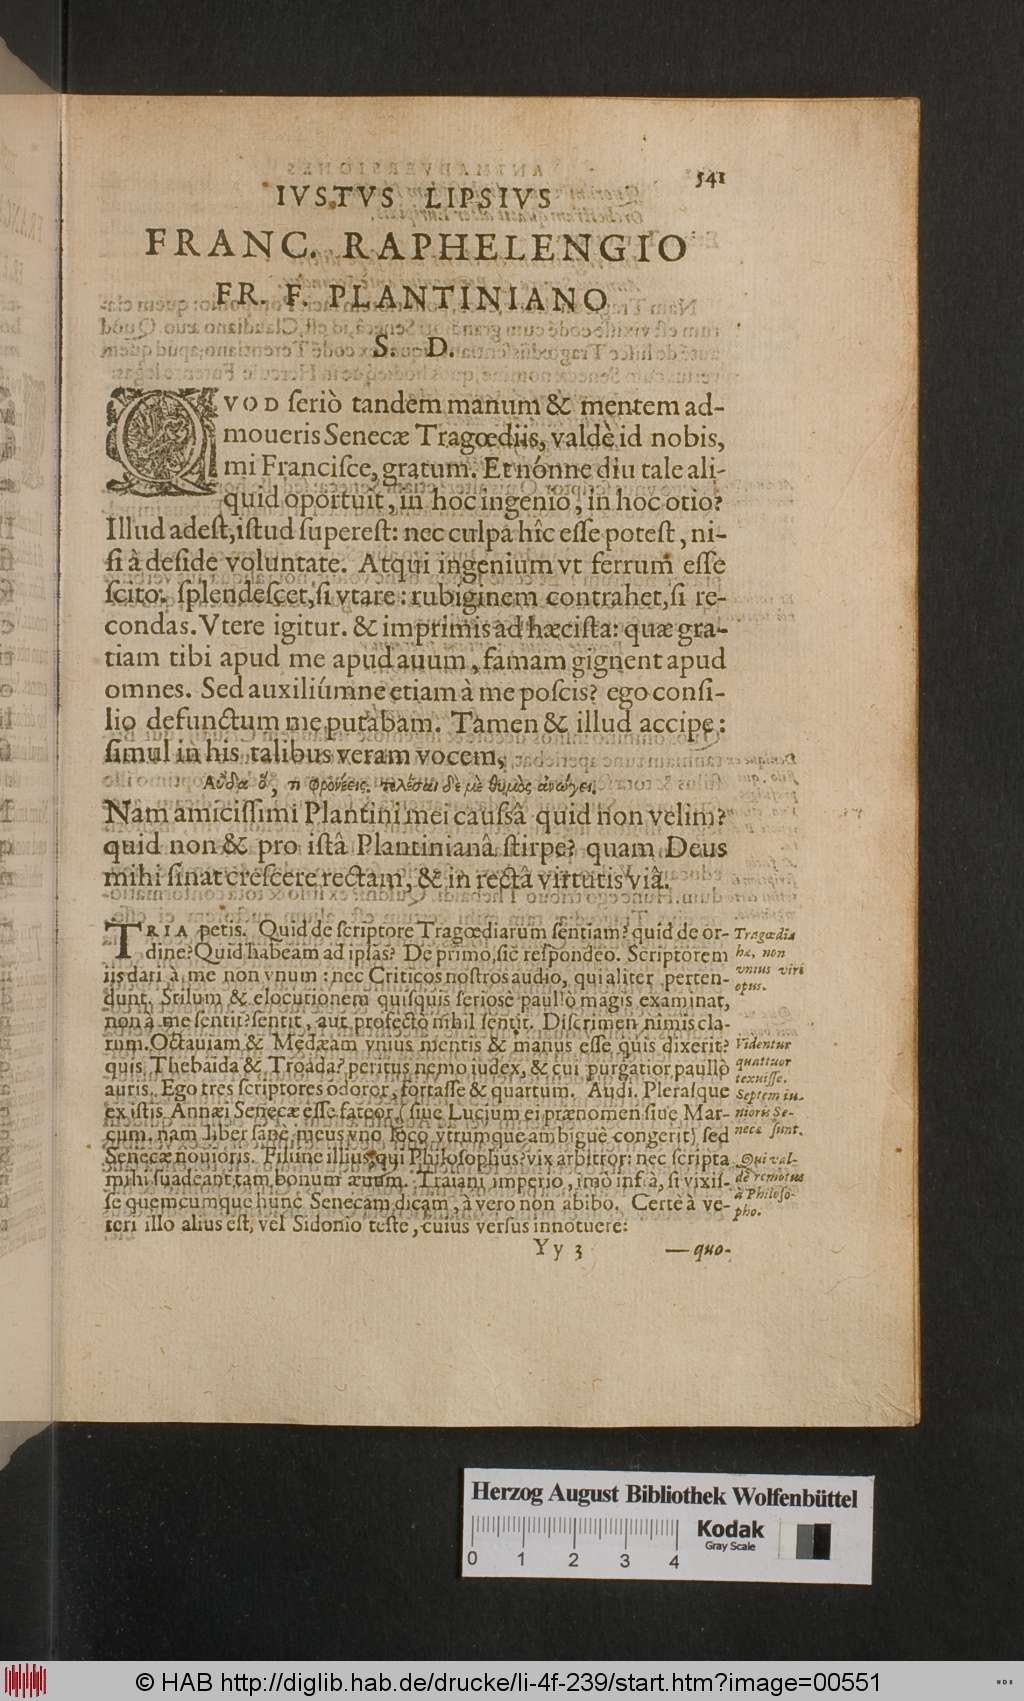 541
IVSTVS LIPSIVS
FRANC. RAPHELENGIO
FR. F. PLANTINIANO
S. D.
QVOD ſeriò tandem manum & mentem ad-
moueris Senecæ Tragœdiis, valdè id nobis,
mi Franciſce, gratum. Et nónne diu tale ali-
quid oportuit, in hoc ingenio, in hoc otio?
Illud adeſt, iſtud ſupereſt: nec culpa hîc eſſe poteſt, ni-
ſi à deſide voluntate. Atqui ingenium vt ferrum eſſe
ſcito: ſplendeſcet, ſi vtare: rubiginem contrahet, ſi re-
condas. Vtere igitur. & imprimis ad hæc iſta: quæ gra-
tiam tibi apud me apud auum, famam gignent apud
omnes. Sed auxiliúmne etiam à me poſcis? ego conſi-
lio defunctum me putabam. Tamen & illud accipe:
ſimul in his talibus veram vocem,
Αὔδα ὅ, τι φρονέεις. τελέσαι δέ με θυμὸς ἀνώγει.
Nam amiciſſimi Plantini mei cauſſâ quid non velim?
quid non & pro iſtâ Plantinianâ ſtirpe? quam Deus
mihi ſinat creſcere rectam, & in rectâ virtutis viâ.
TRIA petis. Quid de ſcriptore Tragœdiarum ſentiam? quid de or-
dine? Quid habeam ad ipſas? De primò, ſic reſpondeo. Scriptorem
iis dari à me non vnum: nec Criticos noſtros audio, qui aliter perten-
dunt. Stilum & elocutionem quiſquis ſerioſè paullò magis examinat,
non à me ſentit? ſentit, aut profectò nihil ſentit. Diſcrimen nimis cla-
rum. Octauiam & Medæam vnius mentis & manus eſſe quis dixerit?
quis Thebaïda & Troada? peritus nemo iudex, & cui purgatior paullò
auris. Ego tres ſcriptores odoror, fortaſſe & quartum. Audi. Pleraſque
ex iſtis Annæi Senecæ eſſe fateor (ſiue Lucium ei prænomen ſiue Mar-
cum. nam liber ſanè meus vno loco vtrumque ambiguè congerit) ſed
Senecæ nouioris. Filiúne illius, qui Philoſophus? vix arbitror: nec ſcripta
mihi ſuadeant tam bonum æuum. Traiani imperio, imò infrà, ſi vixiſ-
ſe quemcumque hunc Senecam dicam, à vero non abibo. Certè à ve-
teri illo alius eſt, vel Sidonio teſte, cuius verſus innotuere:
Tragœdiæ
hæ, non
vnius viri
opus.
Videntur
quattuor
texuiſſe.
Septem iu-
nioris Se-
necæ ſunt.
Qui val-
dè remotus
à Philoſo-
pho.
Yy 3
— quo-
Herzog August Bibliothek Wolfenbüttel
Kodak
Gray Scale
0 1 2 3 4
© HAB http://diglib.hab.de/drucke/li-4f-239/start.htm?image=00551